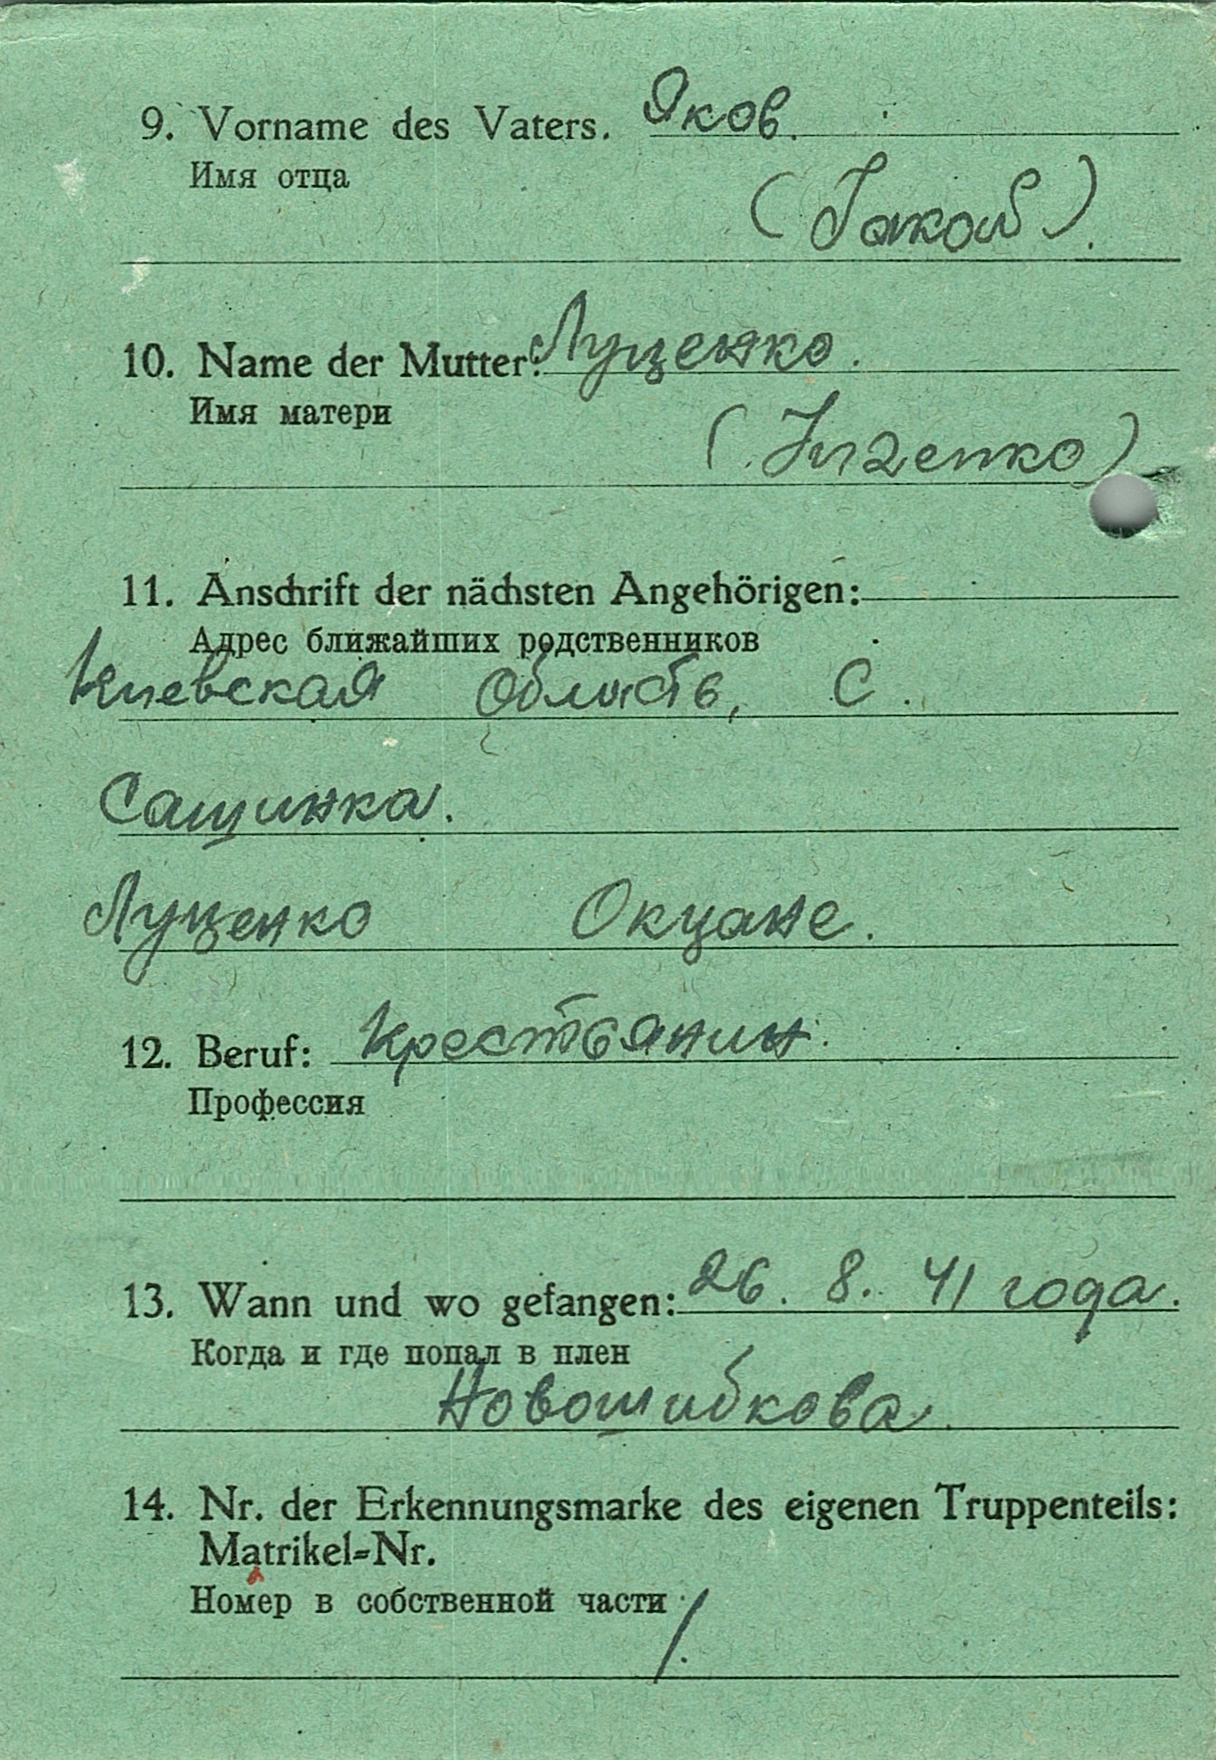 9. Vorname des Vaters. Яков.
Имя отца
(Jakob).
10. Name der Mutter: Луценко.
Имя матери
11. Anschrift der nächsten Angehörigen:
Адрес ближайших родственников
Киевская Область, С.
Сащинка.
Луценко Окцане.
12. Beruf: Крестьянин.
Профессия
13. Wann und wo gefangen: 26. 8. 41 года.
Когда и где попал в плен
Новошибкова.
14. Nr. der Erkennungsmarke des eigenen Truppenteils:
Matrikel-Nr.
Номер в собственной части /.